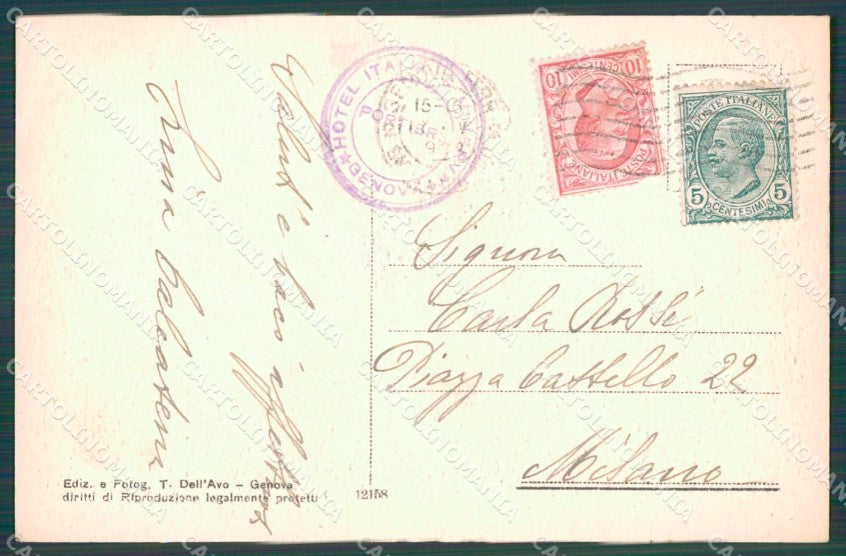 Saluti e baci affettuosi
Luisa Calcaterra
HOTEL ITALIA
PORTIER
GENOVA
15-16
10 CENTESIMI 10
POSTE ITALIANE
POSTE ITALIANE
5 CENTESIMI 5
Signora
Carla Rossi
Piazza Castello 22
Milano
Ediz. e Fotog. T. Dell'Avo – Genova
diritti di Riproduzione legalmente protetti
12158
CARTOLINOMANIA